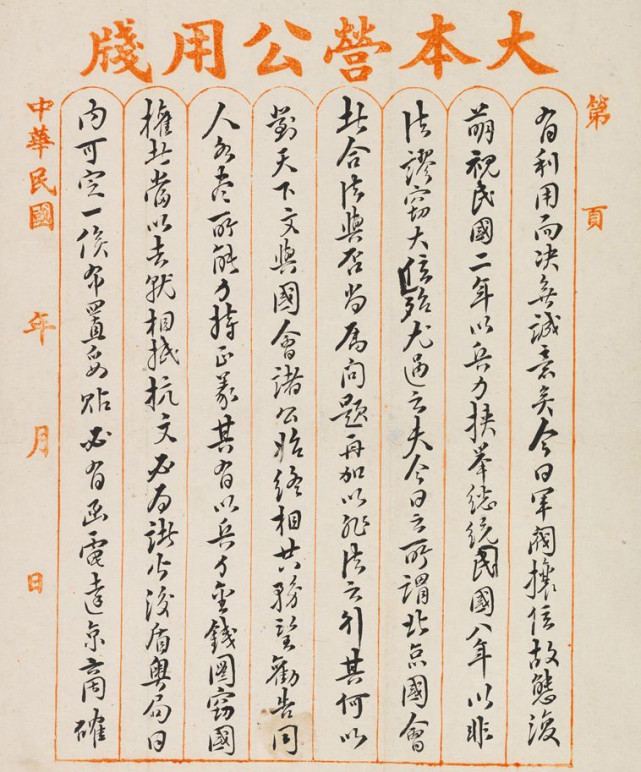 大本營公用牋
第 頁
有利用而決無誠意矣今日軍閥攘位故態復
萌視民國二年以兵力挾舉總統民國八年以非
法謬竊大位殆尤過之夫今日之所謂北京國會
此合法與否尚屬問題再加以非法之行其何以
對天下文與國會諸公始終相共務望勸告同
人各盡所能力持正義其有以兵力金錢圖竊國
權者當以去就相抵抗文必為諸公後盾粵局日
內可定一俟布置妥貼必有函電達京商確
中華民國 年 月 日